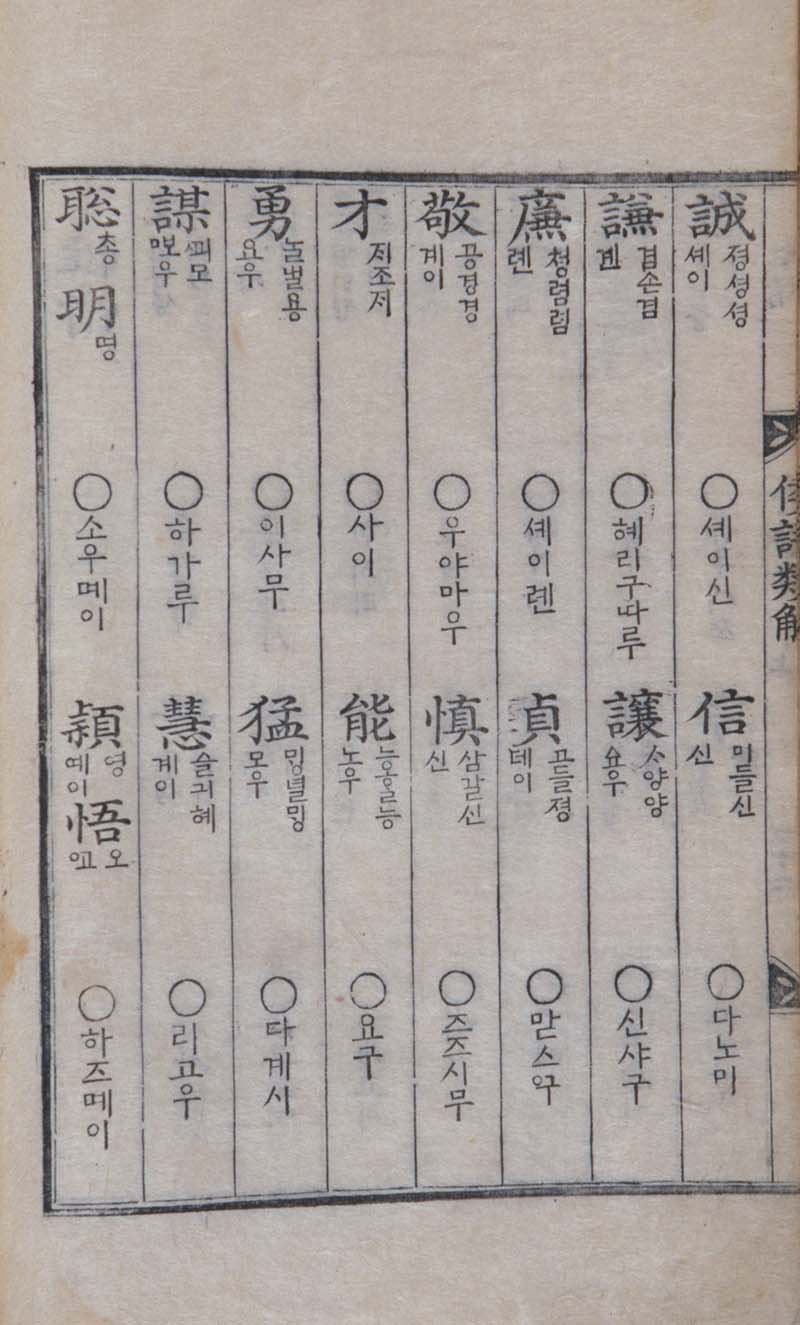 倭語類解
誠 졍셩셩 셰이 ○셰이신 信 미들신 신 ○다노미
謙 겸손겸 켄 ○혜리구따루 讓 ᄉᆞ양양 ᅀᅭ우 ○신샤구
廉 쳥렴렴 렌 ○셰이렌 貞 고들졍 테이 ○맏스ᅌ구
敬 공경경 계이 ○우야마우 愼 삼갈신 신 ○즈즈시무
才 ᄌᆡ조ᄌᆡ ○사이 能 능ᄒᆞᆯ능 노우 ○요구
勇 용 요우 ○이사무 猛 ᄆᆡᆼ녈ᄆᆡᆼ 모우 ○다계시
謀 ᄭᅬ모 ○하가루 慧 슬긔혜 계이 ○리고우
聡 총 明 명 ○소우메이 穎 영 예이 悟 오 ᅌ고 ○하즈메이